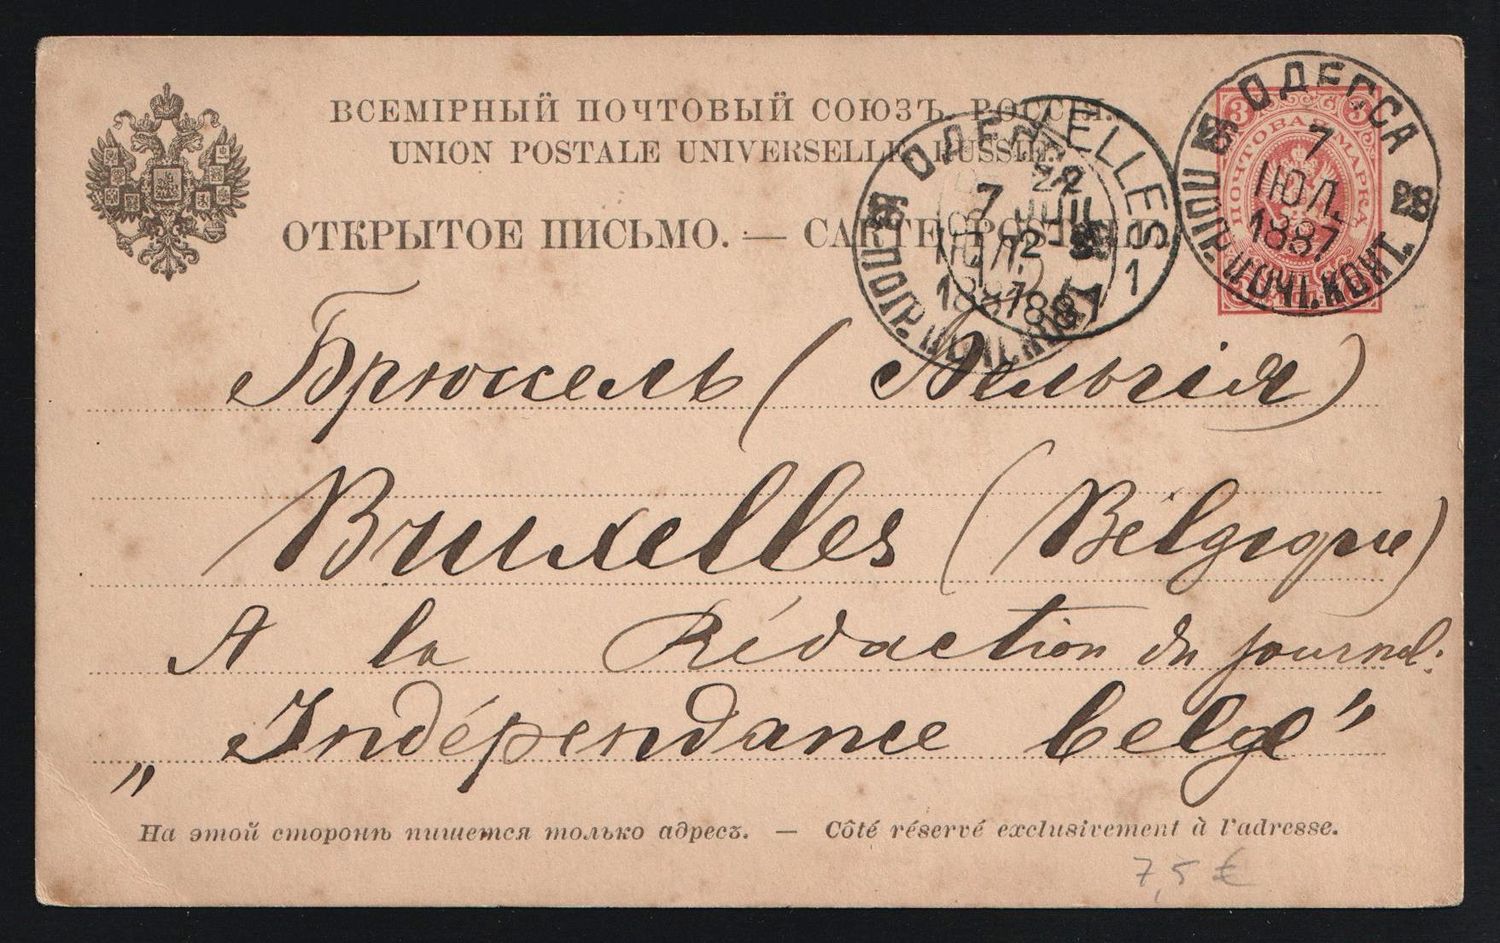 ВСЕМІРНЫЙ ПОЧТОВЫЙ СОЮЗЪ. РОССІЯ.
UNION POSTALE UNIVERSELLE. RUSSIE.
ОТКРЫТОЕ ПИСЬМО. — CARTE POSTALE.
ОДЕССА
7
ІЮЛ.
1887
ПОГР. ПОЧТ. КОНТ.
ОДЕССА
7
ІЮЛ.
1887
ПОГР. ПОЧТ. КОНТ.
22
JUIL
1887
1
3 3
ПОЧТОВАЯ МАРКА
Брюссель (Бельгія)
Bruxelles (Bélgique)
A la Rédaction du journal:
„Indépendance belge"
На этой сторонѣ пишется только адресъ. — Côté réservé exclusivement à l'adresse.
7,5 €